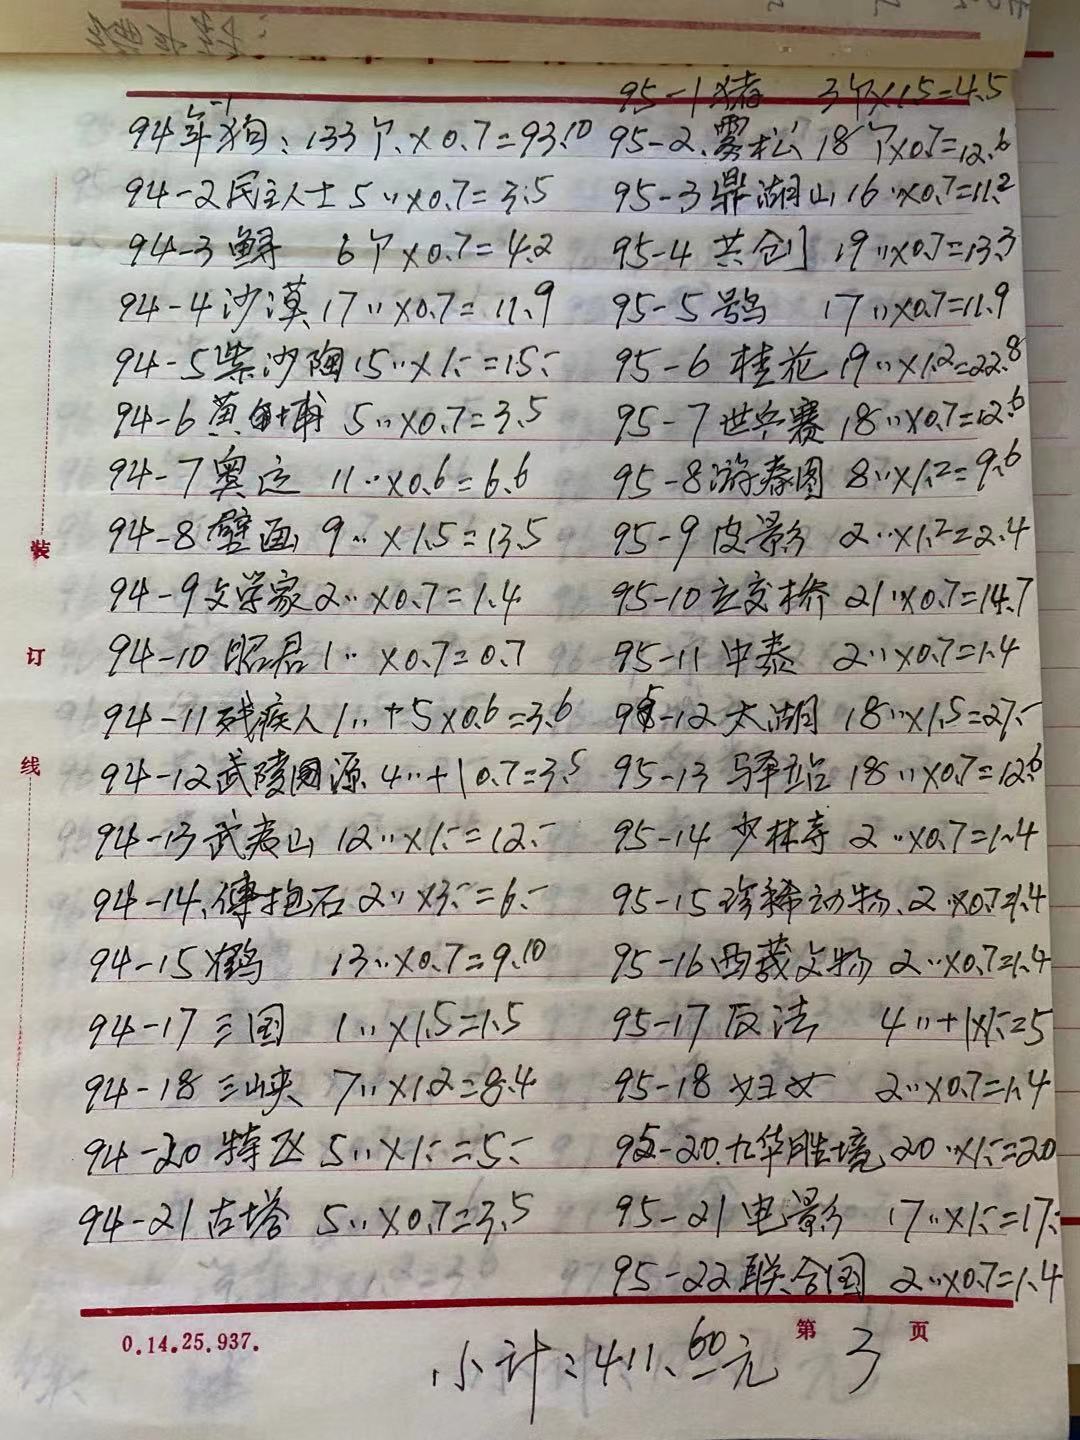 95-1猪 3个×1.5=4.5
94年-1狗:133个×0.7=93.10
95-2.雾松 18个×0.7=12.6
94-2民主人士 5〃×0.7=3.5
95-3鼎湖山 16〃×0.7=11.2
94-3 鲟 6个×0.7=4.2
95-4 共创 19〃×0.7=13.3
94-4沙漠 17〃×0.7=11.9
95-5 鹗 17〃×0.7=11.9
94-5紫沙陶 15〃×1.-=15.-
95-6 桂花 19〃×1.2=22.8
94-6 黄埔 5〃×0.7=3.5
95-7 世乒赛 18〃×0.7=12.6
94-7 奥运 11〃×0.6=6.6
95-8游春图 8〃×1.2=9.6
94-8 壁画 9〃×1.5=13.5
95-9 皮影 2〃×1.2=2.4
94-9文学家 2〃×0.7=1.4
95-10立交桥 21〃×0.7=14.7
94-10 昭君 1〃×0.7=0.7
95-11 中泰 2〃×0.7=1.4
94-11残疾人 1〃+5×0.6=3.6
95-12 太湖 18〃×1.5=27.-
94-12武陵圆源 4〃+1 0.7=3.5
95-13 驿站 18〃×0.7=12.6
94-13武夷山 12〃×1.-=12.-
95-14 少林寺 2〃×0.7=1.4
94-14.傅抱石 2〃×3.-=6.-
95-15珍稀动物.2〃×0.7=1.4
94-15 鹤 13〃×0.7=9.10
95-16西藏文物 2〃×0.7=1.4
94-17 三国 1〃×1.5=1.5
95-17 反法 4〃+1×1.-=5
94-18 三峡 7〃×1.2=8.4
95-18 妇女 2〃×0.7=1.4
94-20 特区 5〃×1.-=5.-
95-20.九华胜境 20〃×1.-=20
94-21古塔 5〃×0.7=3.5
95-21电影 17〃×1.-=17.-
95-22联合国 2〃×0.7=1.4
装
订
线
0.14.25.937.
第 3 页
小计:411.60元